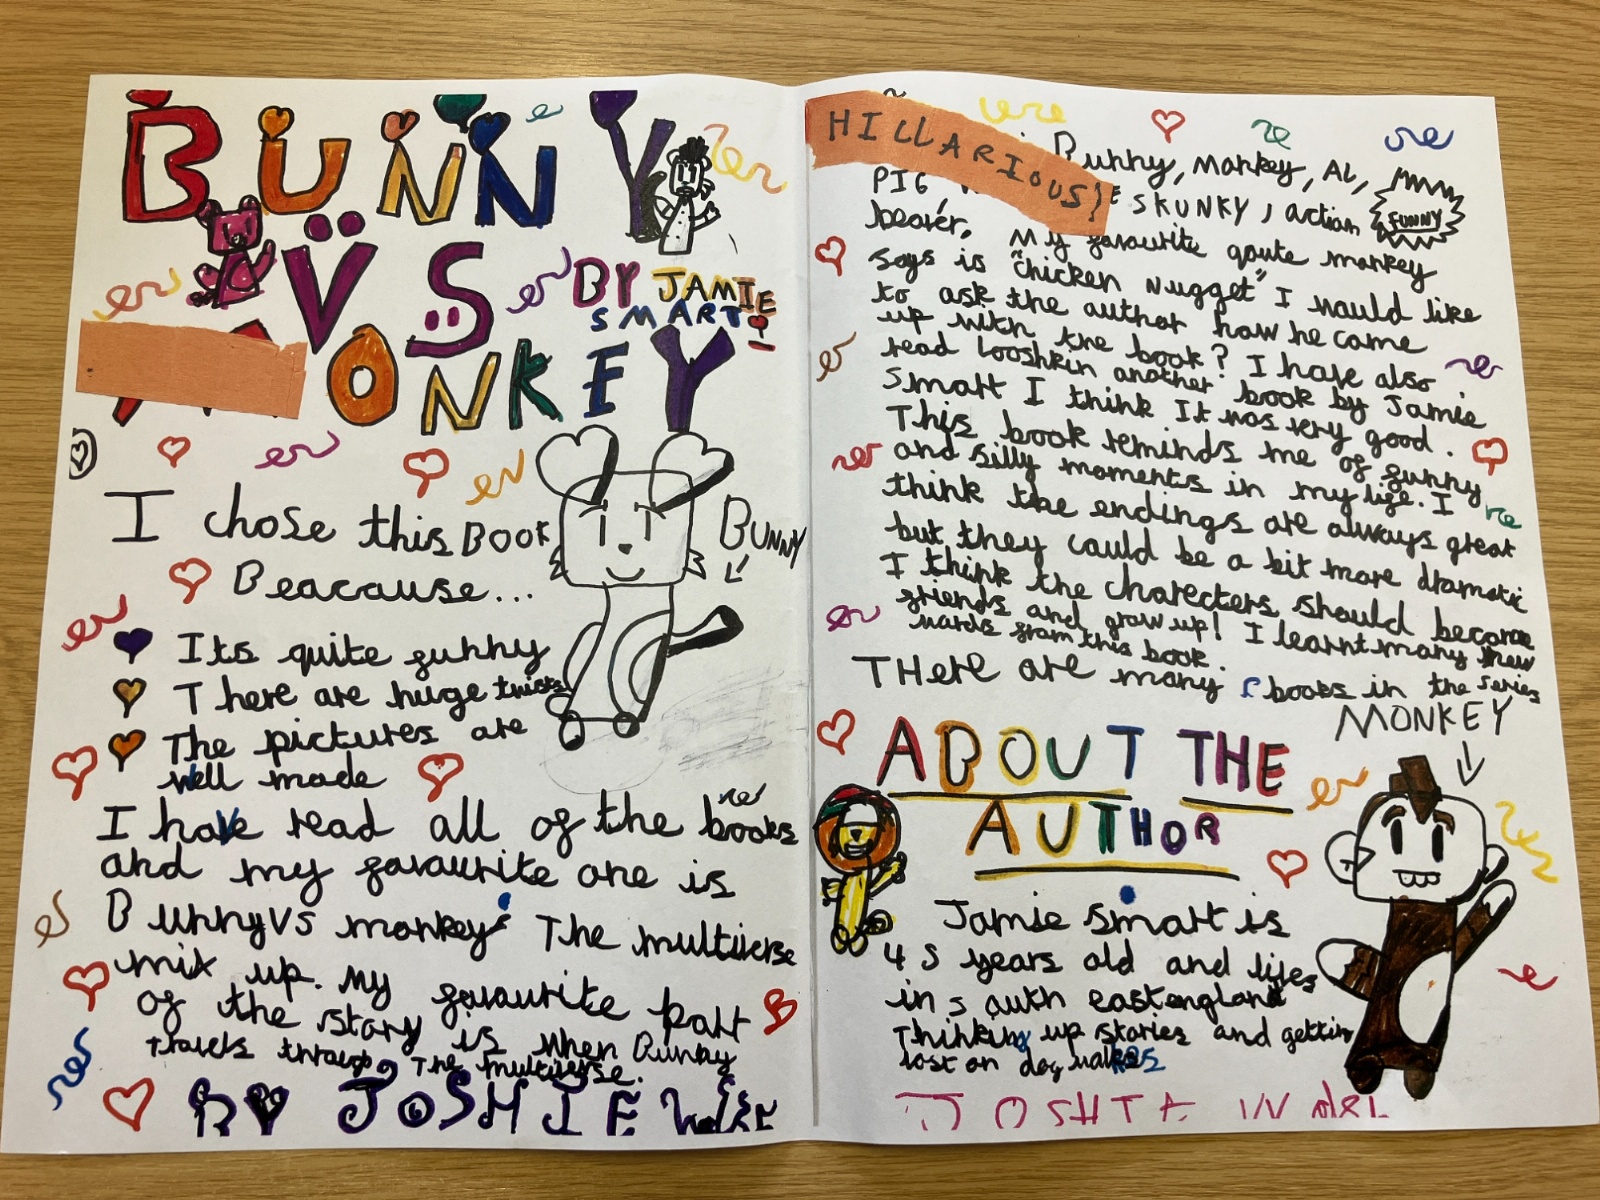 BUNNY
VS
BY JAMIE
SMART!
ONKEY
I chose this BOOK
Beacause...
BUNNY
Its quite funny
There are huge twists
The pictures are
well made
I have read all of the books
and my favourite one is
Bunny vs monkey The multiverse
mix up. My favourite part
of the story is when Bunny
Travels through The multiverse.
BY JOSHIE
HILLARIOUS!
Bunny, Monkey, AL,
PIG SKUNKY, action
FUNNY
beaver, My favourite qoute monkey
says is "Chicken Nugget" I would like
to ask the author how he came
up with the book? I have also
read Looshkin another book by Jamie
Smart I think It was very good.
This book reminds me of funny
and silly moments in my life. I
think the endings are always great
but they could be a bit more dramatic
I think the charecters should become
friends and grow up! I learnt many new
words from this book.
THere are many books in the series
MONKEY
ABOUT THE
AUTHOR
Jamie smart is
45 years old and lives
in south east england
Thinking up stories and getting
lost on dog walks